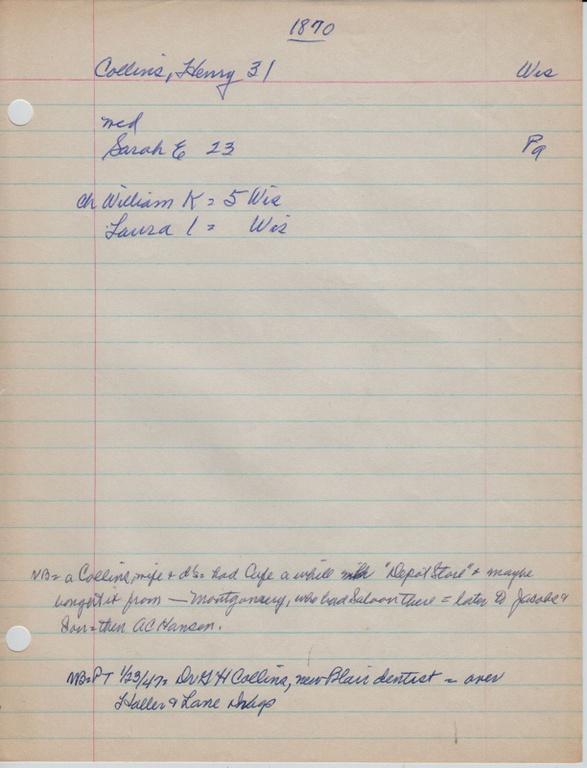 1870
Collins, Henry 31 Wis
md
Sarah E 23 Pa
ch William K = 5 Wis
Laura 1 = Wis
NB = a Collins, wife & had Cafe a while "Depot Store" & maybe
bought it from — Montgomery, who had Saloon there = later to Jacobs &
Son = then AC Hansen.
NB = PT 1/23/47 = Dr G H Collins, new Blair dentist = over
Haller & Lane Drugs